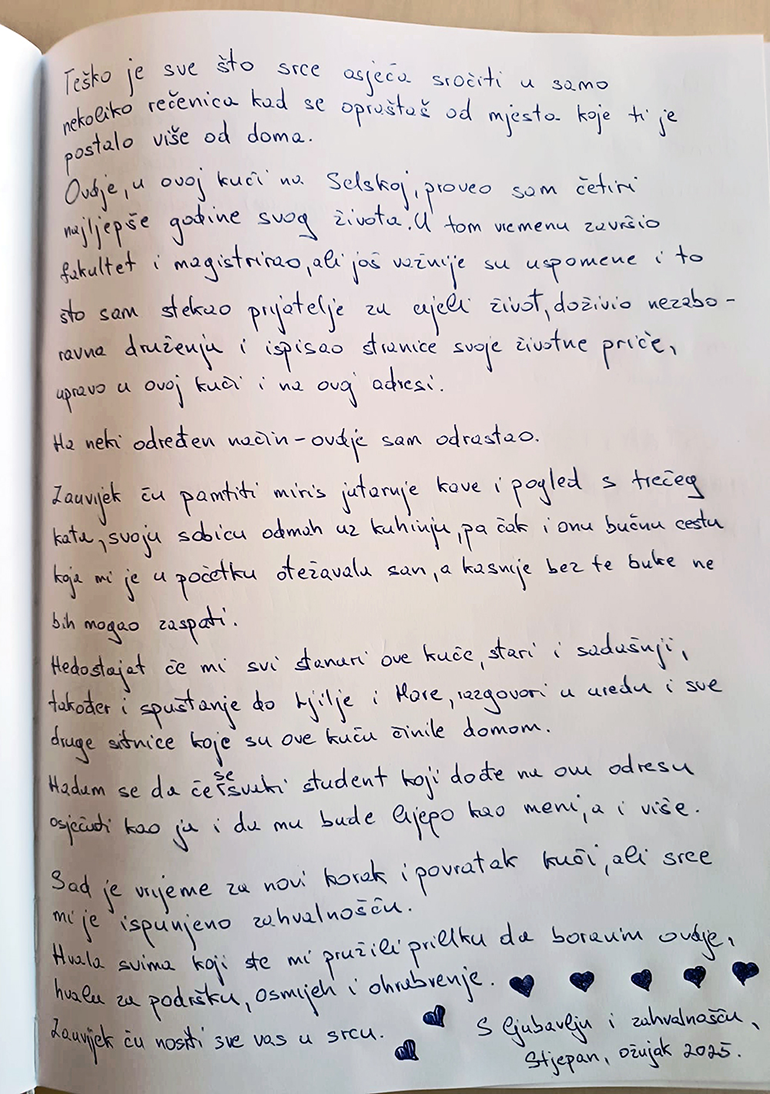 Teško je sve što srce osjeća sročiti u samo
nekoliko rečenica kad se opraštaš od mjesta koje ti je
postalo više od doma.
Ovdje, u ovoj kući na Selskoj, proveo sam četiri
najljepše godine svog života. U tom vremenu završio
fakultet i magistrirao, ali još važnije su uspomene i to
što sam stekao prijatelje za cijeli život, doživio nezabo-
ravna druženja i ispisao stranice svoje životne priče,
upravo u ovoj kući i na ovoj adresi.
Na neki određen način – ovdje sam odrastao.
Zauvijek ću pamtiti miris jutarnje kave i pogled s trećeg
kata, svoju sobicu odmah uz kuhinju, pa čak i onu bučnu cestu
koja mi je u početku otežavala san, a kasnije bez te buke ne
bih mogao zaspati.
Nedostajat će mi svi stanari ove kuće, stari i sadašnji,
također i spuštanje do Ljilje i Mare, razgovori u uredu i sve
druge sitnice koje su ove kuću činile domom.
Nadam se da će se svaki student koji dođe na ovu adresu
osjećati kao ja i da mu bude lijepo kao meni, a i više.
Sad je vrijeme za novi korak i povratak kući, ali srce
mi je ispunjeno zahvalnošću.
Hvala svima koji ste mi pružili priliku da boravim ovdje,
hvala za podršku, osmijeh i ohrabrenje.
Zauvijek ću nositi sve vas u srcu.
S ljubavlju i zahvalnošću,
Stjepan, ožujak 2025.